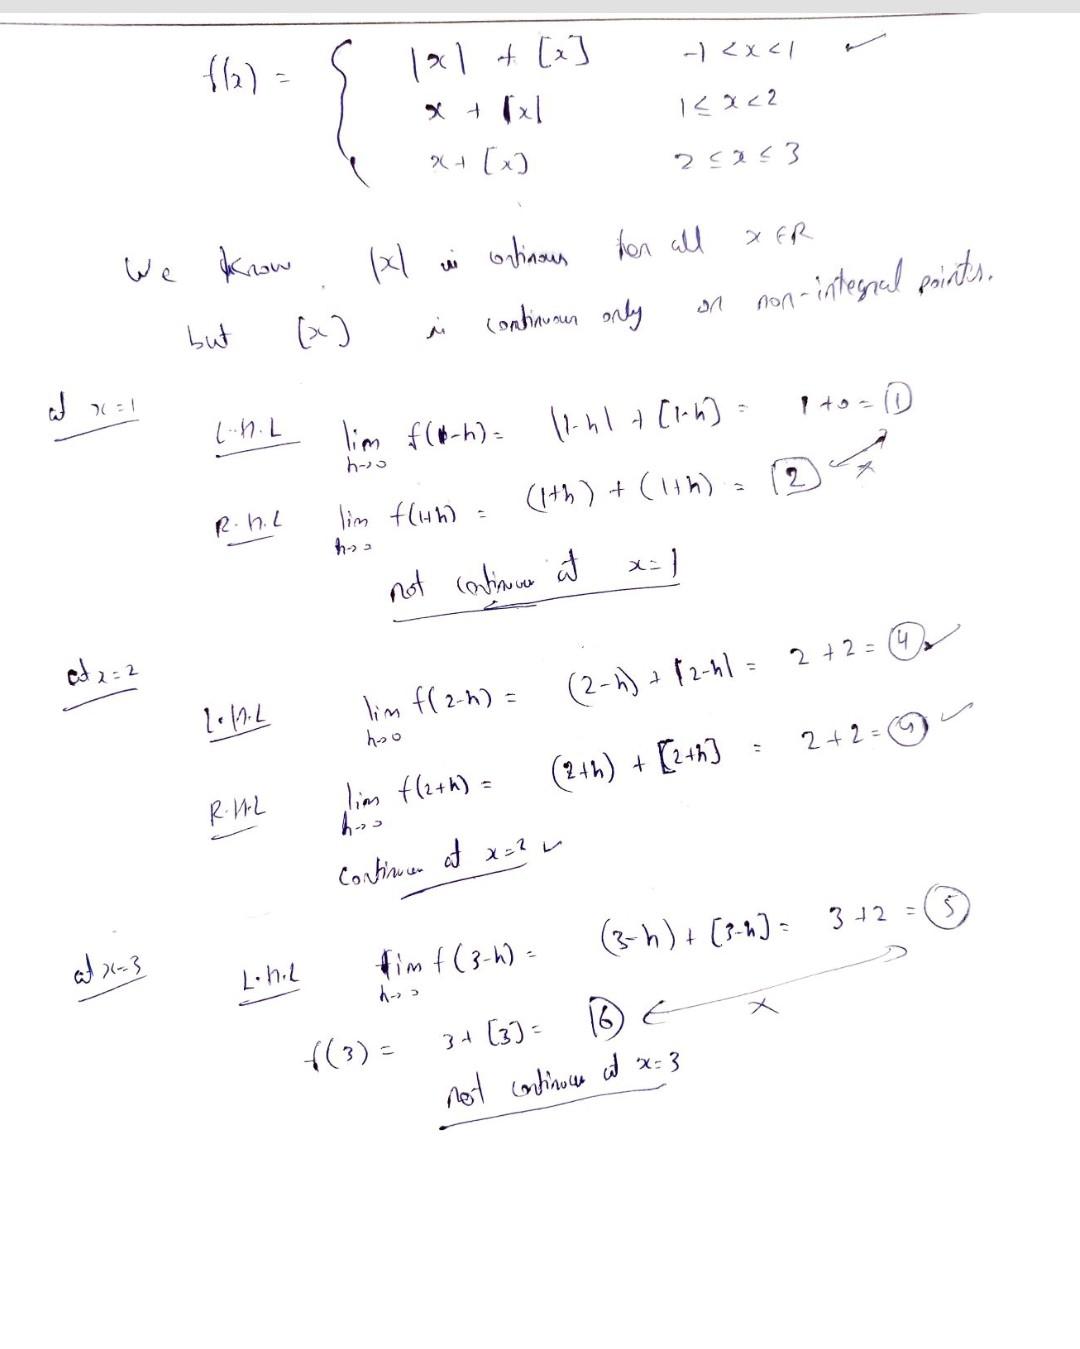 f(x) = { |x| + [x] -1 < x < 1 ✓
x + |x| 1 ≤ x < 2
x + [x] 2 ≤ x ≤ 3
We know |x| is continous for all x ∈ R
but [x] is continuous only on non-integral points.
at x=1
L.H.L lim h→0 f(1-h) = |1-h| + [1-h] = 1 + 0 = 1
R.H.L lim h→0 f(1+h) = (1+h) + (1+h) = 2 x
not continuous at x=1
at x=2
L.H.L lim h→0 f(2-h) = (2-h) + |2-h| = 2 + 2 = 4 ✓
R.H.L lim h→0 f(2+h) = (2+h) + [2+h] = 2 + 2 = 4 ✓
Continuous at x=2 ✓
at x=3
L.H.L lim h→0 f(3-h) = (3-h) + [3-h] = 3 + 2 = 5
f(3) = 3 + [3] = 6 x
not continuous at x=3